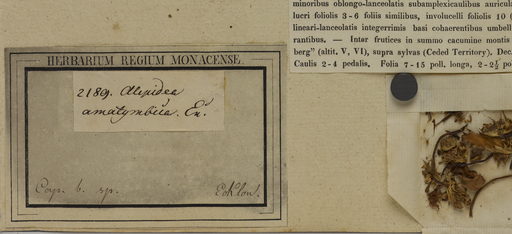 minoribus oblongo-lanceolatis subamplexicaulibus auricula
lucri foliolis 3-6 foliis similibus, involucelli foliolis 10 (
lineari-lanceolatis integerrimis basi cohaerentibus umbell
rantibus. — Inter frutices in summo cacumine montis
berg” (altit. V, VI), supra sylvas (Ceded Territory). Dec.
Caulis 2-4 pedalis. Folia 7-15 poll. longa, 2-2½ po
HERBARIUM REGIUM MONACENSE.
2189. Alepidea
amatymbica. E.
Cap. b. sp.
Ecklon.